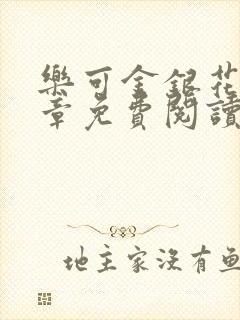 樂可金銀花
章免費閱讀
地主家沒有魚